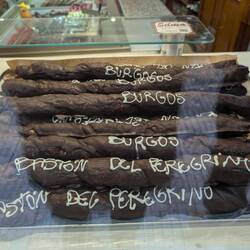 BURGOS
BURGOS
BURGOS
BURGOS
BASTÓN DEL PEREGRINO
BASTÓN DEL PEREGRINO